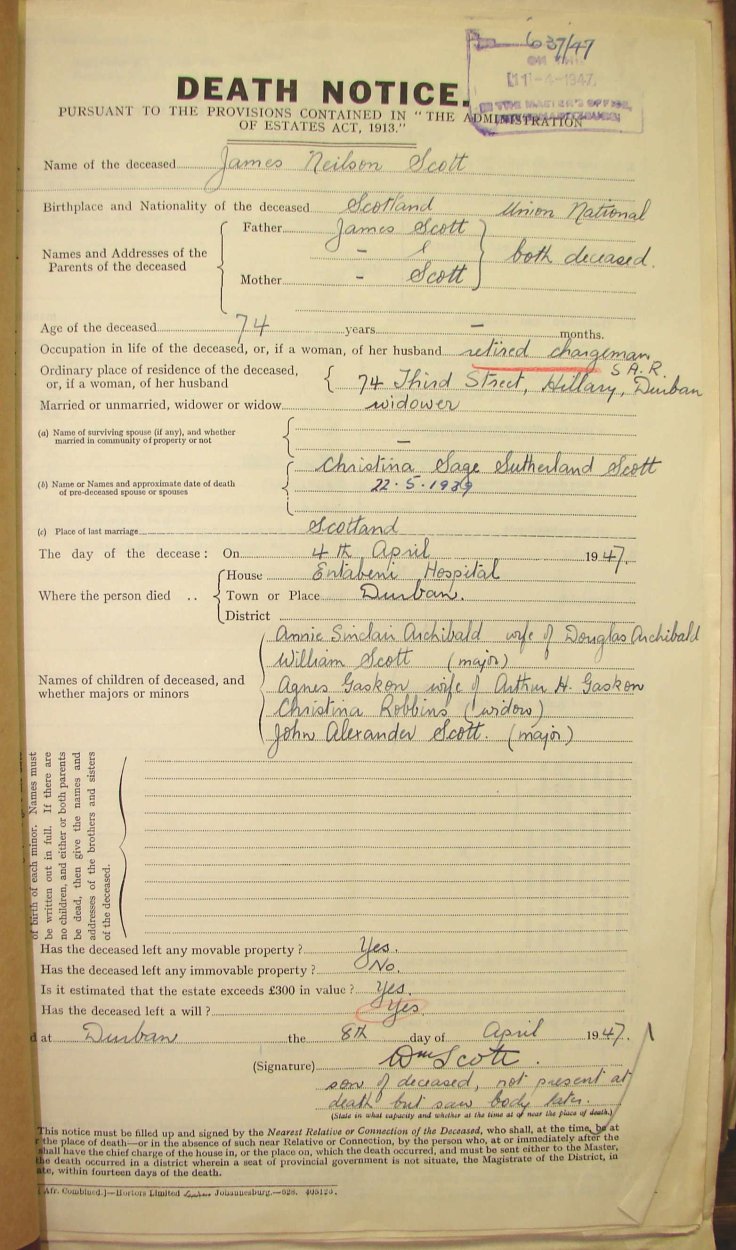 637/47
11-4-1947
IN THE MASTER'S OFFICE,
DEATH NOTICE.
PURSUANT TO THE PROVISIONS CONTAINED IN "THE ADMINISTRATION
OF ESTATES ACT, 1913."
Name of the deceased James Neilson Scott
Birthplace and Nationality of the deceased Scotland Union National
Names and Addresses of the Parents of the deceased
Father James Scott
both deceased.
Mother - Scott
Age of the deceased 74 years - months.
Occupation in life of the deceased, or, if a woman, of her husband retired chargeman
S.A.R.
Ordinary place of residence of the deceased,
or, if a woman, of her husband 74 Third Street, Hillary, Durban
Married or unmarried, widower or widow widower
(a) Name of surviving spouse (if any), and whether
married in community of property or not -
Christina Sage Sutherland Scott
(b) Name or Names and approximate date of death
of pre-deceased spouse or spouses 22.5.1939
(c) Place of last marriage Scotland
The day of the decease: On 4th April 1947.
Where the person died ..
House Entabeni Hospital
Town or Place Durban.
District
Names of children of deceased, and
whether majors or minors
Annie Sinclair Archibald wife of Douglas Archibald
William Scott (major)
Agnes Gaskon wife of Arthur H. Gaskon
Christina Robbins (widow)
John Alexander Scott. (major)
of birth of each minor. Names must
be written out in full. If there are
no children, and either or both parents
be dead, then give the names and
addresses of the brothers and sisters
of the deceased.
Has the deceased left any movable property? Yes.
Has the deceased left any immovable property? No.
Is it estimated that the estate exceeds £300 in value? Yes.
Has the deceased left a will? Yes.
d at Durban the 8th day of April 1947.
(Signature) Wm Scott.
son of deceased, not present at
death but saw body later.
(State in what capacity and whether at the time at or near the place of death.)
This notice must be filled up and signed by the Nearest Relative or Connection of the Deceased, who shall, at the time, be at
the place of death—or in the absence of such near Relative or Connection, by the person who, at or immediately after the
shall have the chief charge of the house in, or the place on, which the death occurred, and must be sent either to the Master,
the death occurred in a district wherein a seat of provincial government is not situate, the Magistrate of the District, in
ate, within fourteen days of the death.
Afr. Combined.]—Hortors Limited Johannesburg.